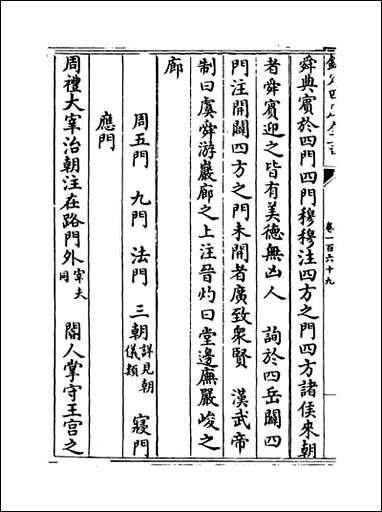 欽定四庫全書
卷一百六十九
舜典賓於四門四門穆穆注四方之門四方諸侯來朝
者舜賓迎之皆有美德無凶人　詢於四岳闢四
門注開闢四方之門未開者廣致衆賢　漢武帝
制曰虞舜游巖廊之上注晉灼曰堂邊廡嚴峻之
廊
周五門　九門　法門　三朝詳見朝儀類　寢門
應門
周禮大宰治朝注在路門外宰夫同　閽人掌守王宮之